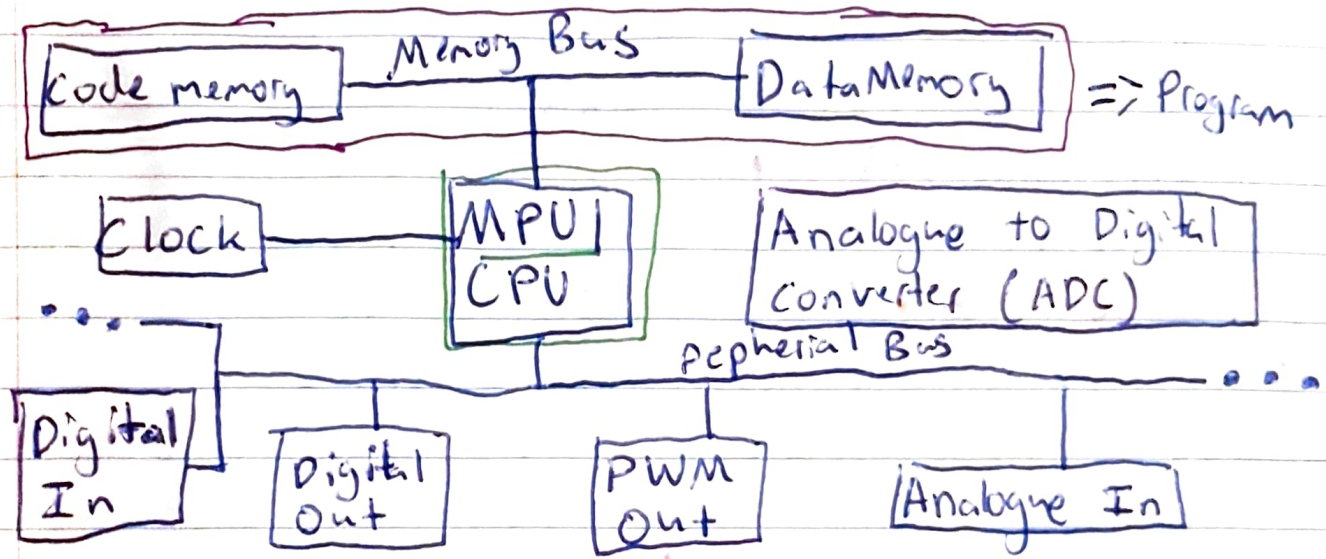 Memory Bus
Code memory
Data Memory
=> Program
Clock
MPU
CPU
Analogue to Digital
Converter (ADC)
Pepherial Bus
Digital
In
Digital
Out
PWM
Out
Analogue In